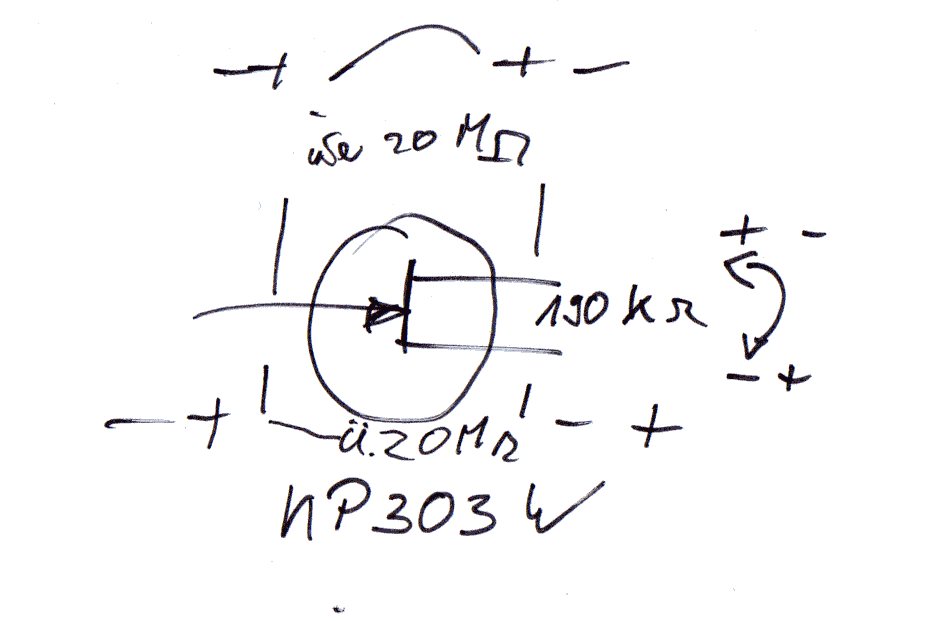 - + + -
über 20 MΩ
+ -
190 kΩ
- +
- + ü. 20 MΩ - +
KP303